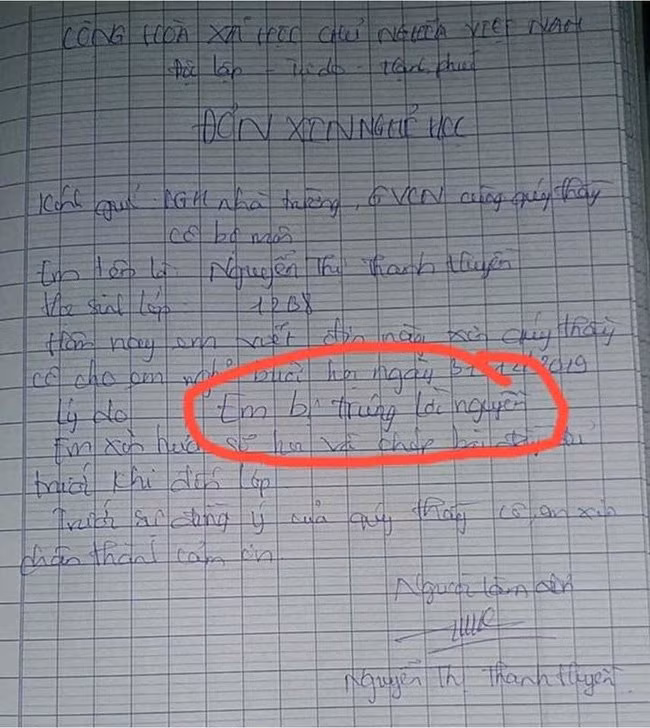 CỘNG HOÀ XÃ HỘI CHỦ NGHĨA VIỆT NAM
Độc lập - Tự do - Hạnh phúc
ĐƠN XIN NGHỈ HỌC
Kính gửi: BGH nhà trường, GVCN cùng quý thầy
cô bộ môn
Em tên là: Nguyễn Thị Thanh Huyền
Học sinh lớp: 12B8
Hôm nay em viết đơn này xin quý thầy
cô cho em nghỉ buổi học ngày 2019
Lý do Em bị trúng lời nguyền
Em xin hứa sẽ học và chép bài đầy đủ
trước khi đến lớp
Trước sự đồng ý của quý thầy cô, em xin
chân thành cảm ơn.
Người làm đơn
Nguyễn Thị Thanh Huyền